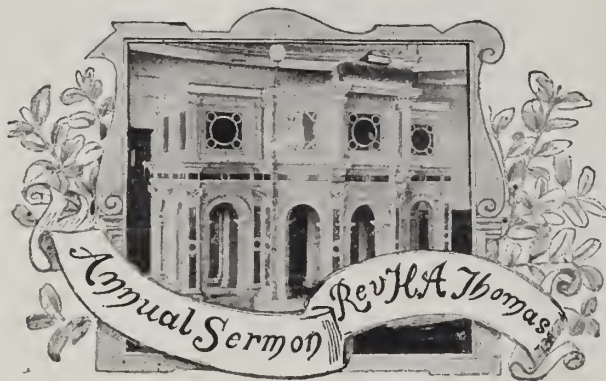 Annual Sermon
Rev H A Thomas